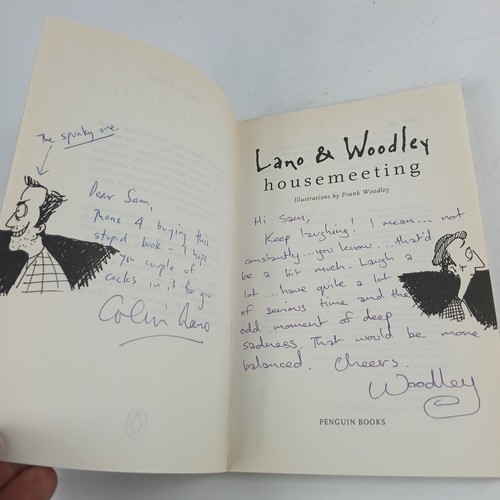 The spunky one.
Dear Sam,
Thanx 4 buying this
stupid book - I hope
you couple of
cacks in it for you
Colin Lano
Lano & Woodley
housemeeting
Illustrations by Frank Woodley
Hi Sam,
Keep laughing! I mean... not
constantly... you know.... that'd
be a bit much. Laugh a
lot... have quite a lot
of serious time and the
odd moment of deep
sadness. That would be more
balanced. Cheers.
Woodley
PENGUIN BOOKS